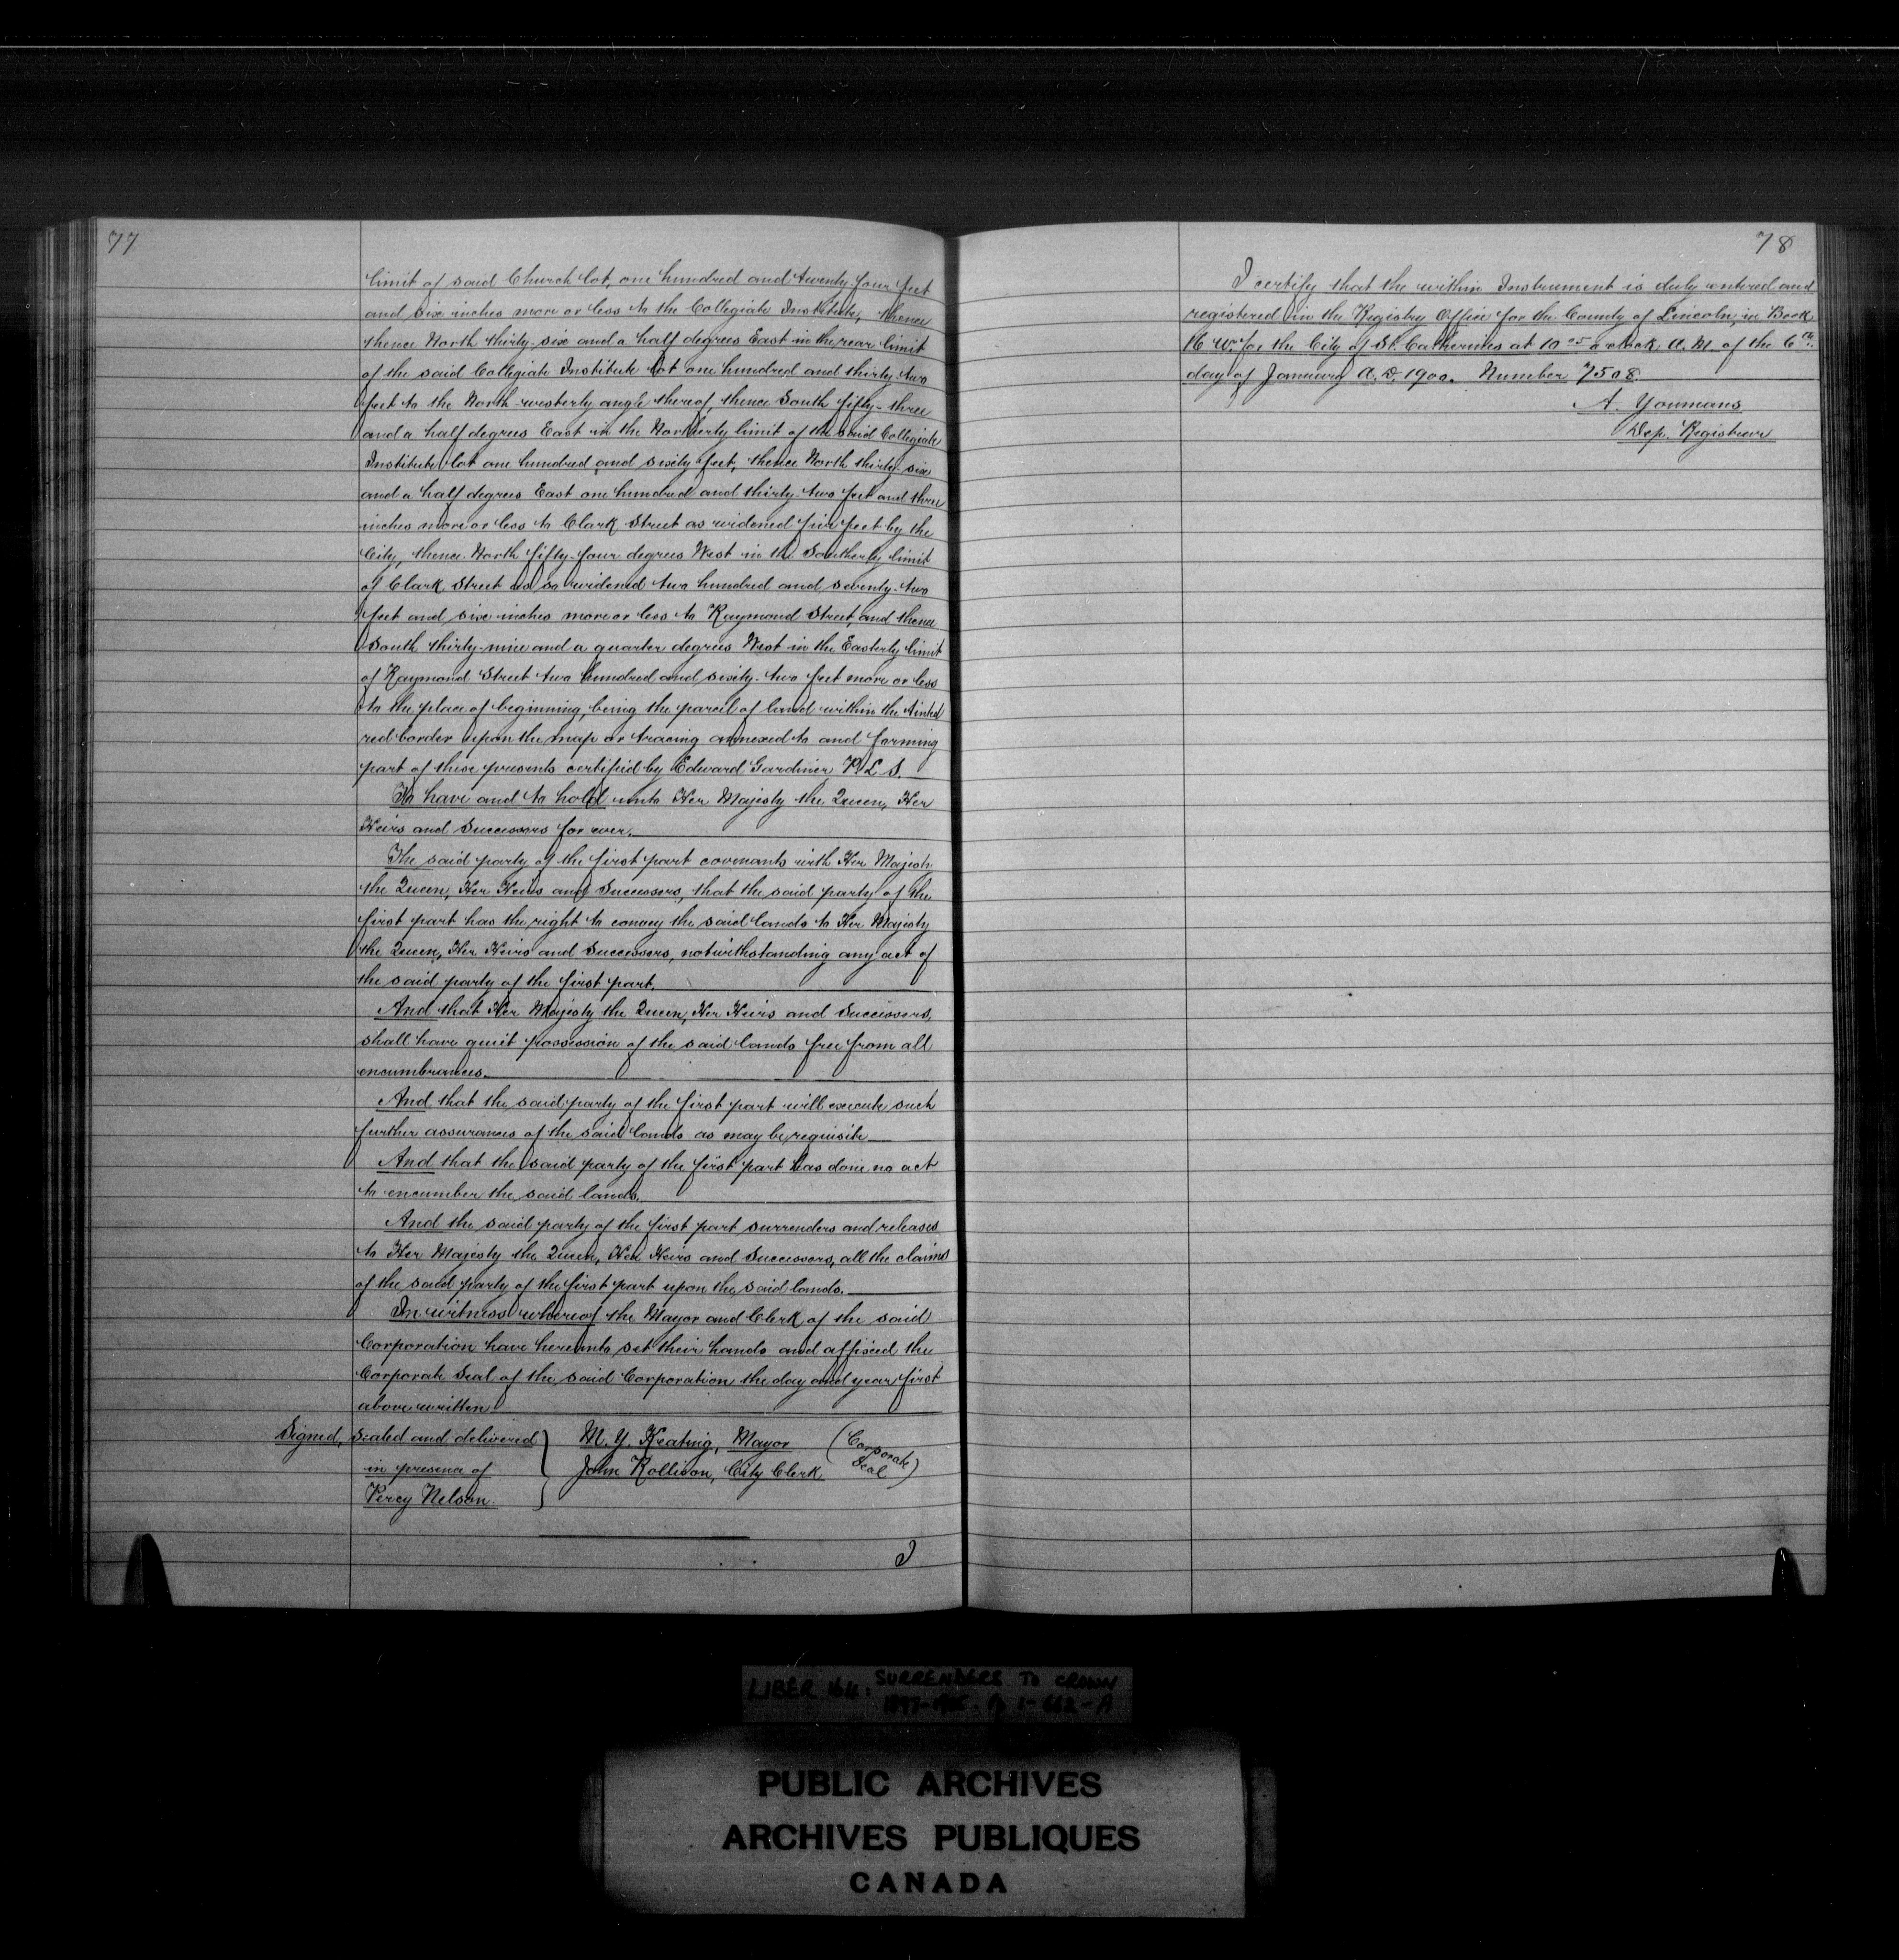 77
limit of said Church lot, one hundred and twenty-four feet
and six inches more or less to the Collegiate Institute, thence
thence North thirty-six and a half degrees East in the rear limit
of the said Collegiate Institute lot one hundred and thirty two
feet to the North-westerly angle thereof, thence South fifty-three
and a half degrees East in the Northerly limit of the said Collegiate
Institute lot one hundred and sixty feet, thence North thirty-six
and a half degrees East one hundred and thirty-two feet and three
inches more or less to Clark Street as widened five feet by the
City, thence North fifty-four degrees West in the Southerly limit
of Clark Street as so widened two hundred and seventy-two
feet and six inches more or less to Raymond Street, and thence
South thirty-nine and a quarter degrees West in the Easterly limit
of Raymond Street two hundred and sixty-two feet more or less
to the place of beginning, being the parcel of land within the tinted
red border upon the map or tracing annexed to and forming
part of these presents certified by Edward Gardiner P.L.S.
To have and to hold unto Her Majesty the Queen, Her
Heirs and Successors for ever.
The said party of the first part covenants with Her Majesty
the Queen, Her Heirs and Successors, that the said party of the
first part has the right to convey the said lands to Her Majesty
the Queen, Her Heirs and Successors, notwithstanding any act of
the said party of the first part.
And that Her Majesty the Queen, Her Heirs and Successors,
shall have quiet possession of the said lands free from all
encumbrances.
And that the said party of the first part will execute such
further assurances of the said lands as may be requisite
And that the said party of the first part has done no act
to encumber the said lands.
And the said party of the first part surrenders and releases
to Her Majesty the Queen, Her Heirs and Successors, all the claims
of the said party of the first part upon the said lands.
In witness whereof the Mayor and Clerk of the said
Corporation have hereunto set their hands and affixed the
Corporate Seal of the said Corporation the day and year first
above written
Signed, Sealed and delivered
in presence of
Percy Nelson.
M. Y. Keating, Mayor
John Rollison, City Clerk
(Corporate Seal)
I
78
I certify that the within Instrument is duly entered and
registered in the Registry Office for the County of Lincoln, in Book
16 W. for the City of St. Catherines at 10 05 o'clock A.M. of the 6th.
day of January A.D. 1900. Number 7508.
A. Youmans
Dep. Registrar
LIBER 164: SURRENDERS TO CROWN
1-662-A
PUBLIC ARCHIVES
ARCHIVES PUBLIQUES
CANADA